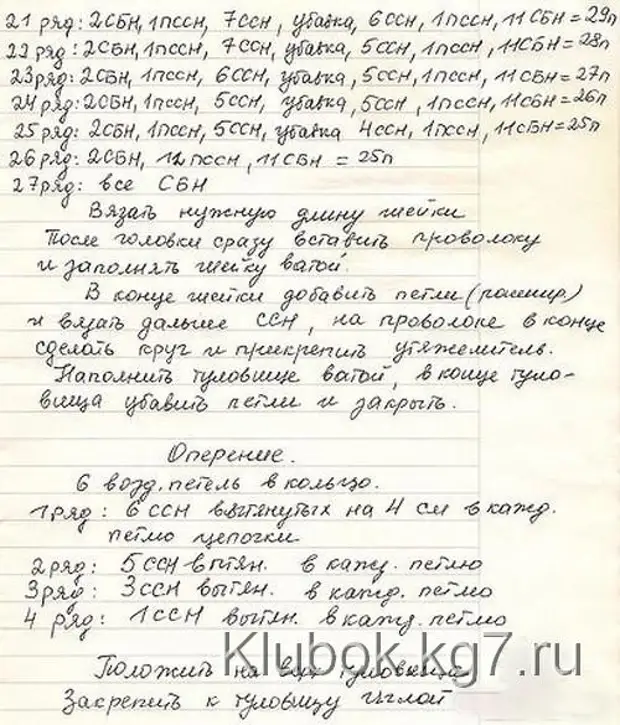 21 ряд: 2СБН, 1пссн, 7ссн, убавка, 6ссн, 1пссн, 11СБН=29п
22 ряд: 2СБН, 1пссн, 7ссн, убавка, 5ссн, 1пссн, 11СБН=28п
23ряд: 2СБН, 1пссн, 6ссн, убавка, 5ссн, 1пссн, 11СБН=27п
24ряд: 2СБН, 1пссн, 5ссн, убавка, 5ссн, 1пссн, 11СБН=26п
25 ряд: 2СБН, 1пссн, 5ссн, убавка 4ссн, 1пссн, 11СБН=25п
26 ряд: 2СБН, 12пссн, 11СБН = 25п
27ряд: все СБН
Вязать нужную длину шейки
После головки сразу вставить проволоку
и заполнять шейку ватой.
В конце шейки добавить петли (расшир.)
и вязать дальше ССН, на проволоке в конце
сделать круг и прикрепить утяжелитель.
Наполнить туловище ватой, в конце туло-
вища убавить петли и закрыть.
Оперение.
6 возд. петель в кольцо.
1ряд: 6 ССН вытянутых на 4 см в кажд.
петлю цепочки
2ряд: 5ССН вытян. в кажд. петлю
3ряд: 3ССН вытян. в кажд. петлю
4 ряд: 1ССН вытян. в кажд. петлю
Klubok.kg7.ru
Положить на верх туловища
Закрепить к туловищу иглой